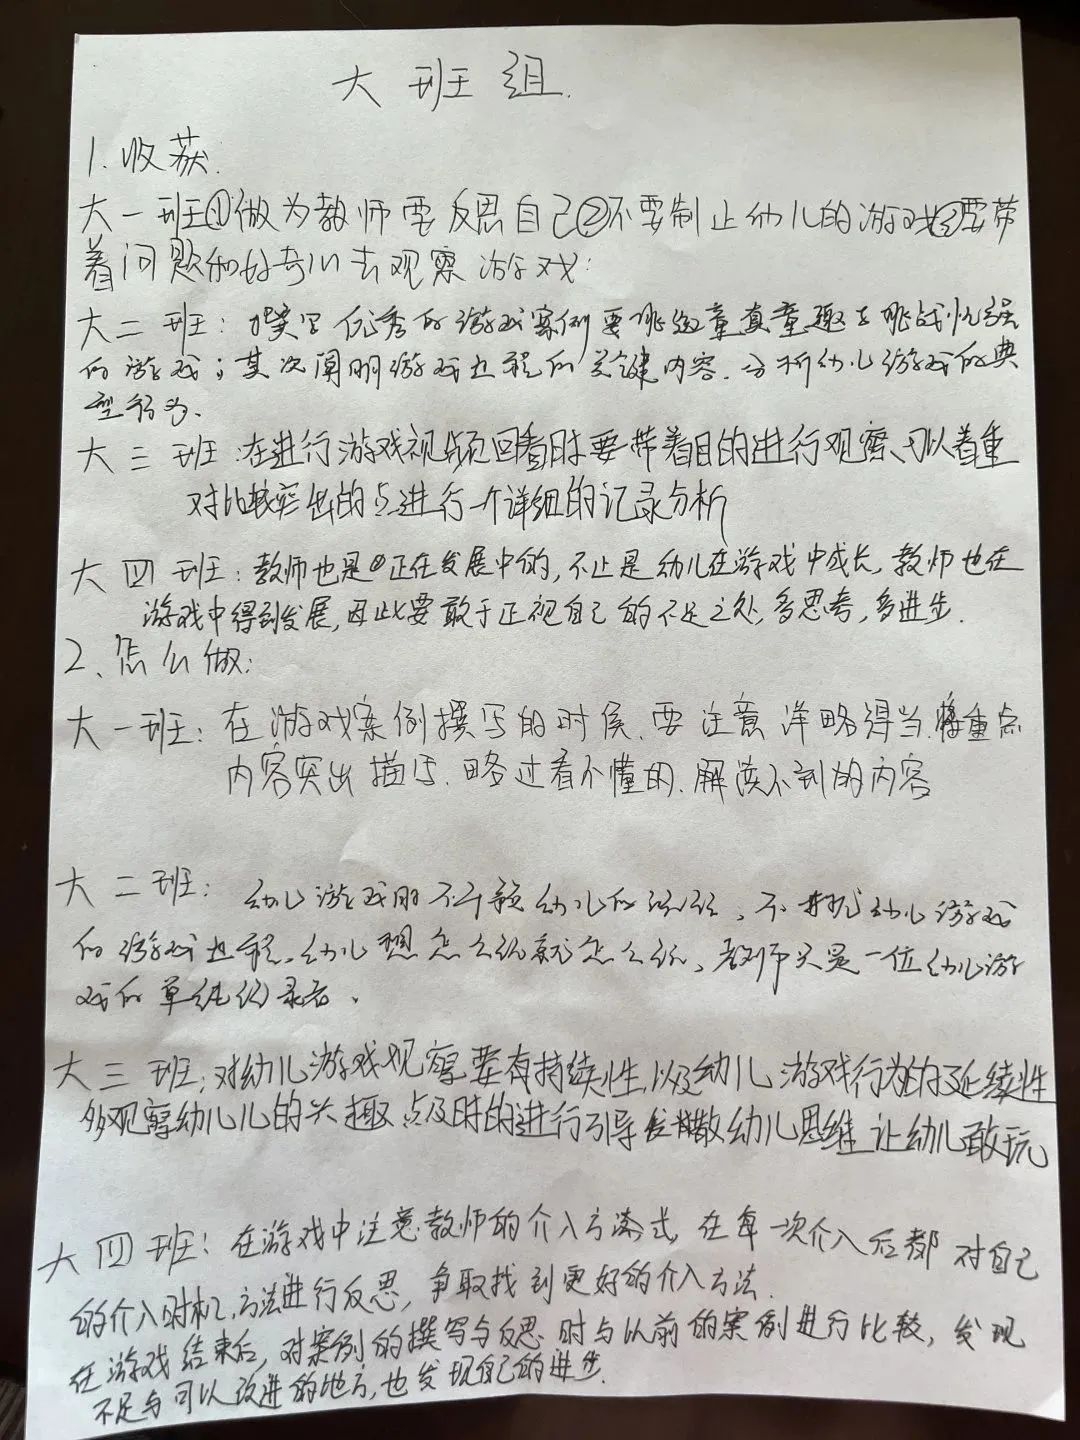 大班组.
1.收获:
大一班①做为教师要反思自己②不要制止幼儿的游戏③要带
着问题和好奇心去观察游戏:
大二班: 撰写优秀的游戏案例要挑选童真童趣与挑战性强
的游戏;其次阐明游戏过程的关键内容.分析幼儿游戏的典
型行为、
大三班:在进行游戏视频回看时要带着目的进行观察、可以着重
对比较突出的点进行一个详细的记录分析
大四班:教师也是正在发展中的,不止是幼儿在游戏中成长,教师也在
游戏中得到发展,因此要敢于正视自己的不足之处,多思考,多进步.
2、怎么做:
大一班:在游戏案例撰写的时候.要注意详略得当.将重点
内容突出描写.略过看不懂的.解读不到的内容
大二班: 幼儿游戏时不干预幼儿的、不打扰幼儿游戏
的游戏过程.幼儿想怎么玩就怎么玩、教师只是一位幼儿游
戏的单纯记录者、
大三班:对幼儿游戏观察要有持续性,以及幼儿游戏行为的延续性
多观察幼儿儿的兴趣点及时的进行引导发散幼儿思维让幼儿敢玩
大四班:在游戏中注意教师的介入方式,在每一次介入后都对自己
的介入时机、方法进行反思,争取找到更好的介入方法.
在游戏结束后,对案例的撰写与反思时与以前的案例进行比较,发现
不足与可以改进的地方,也发现自己的进步.